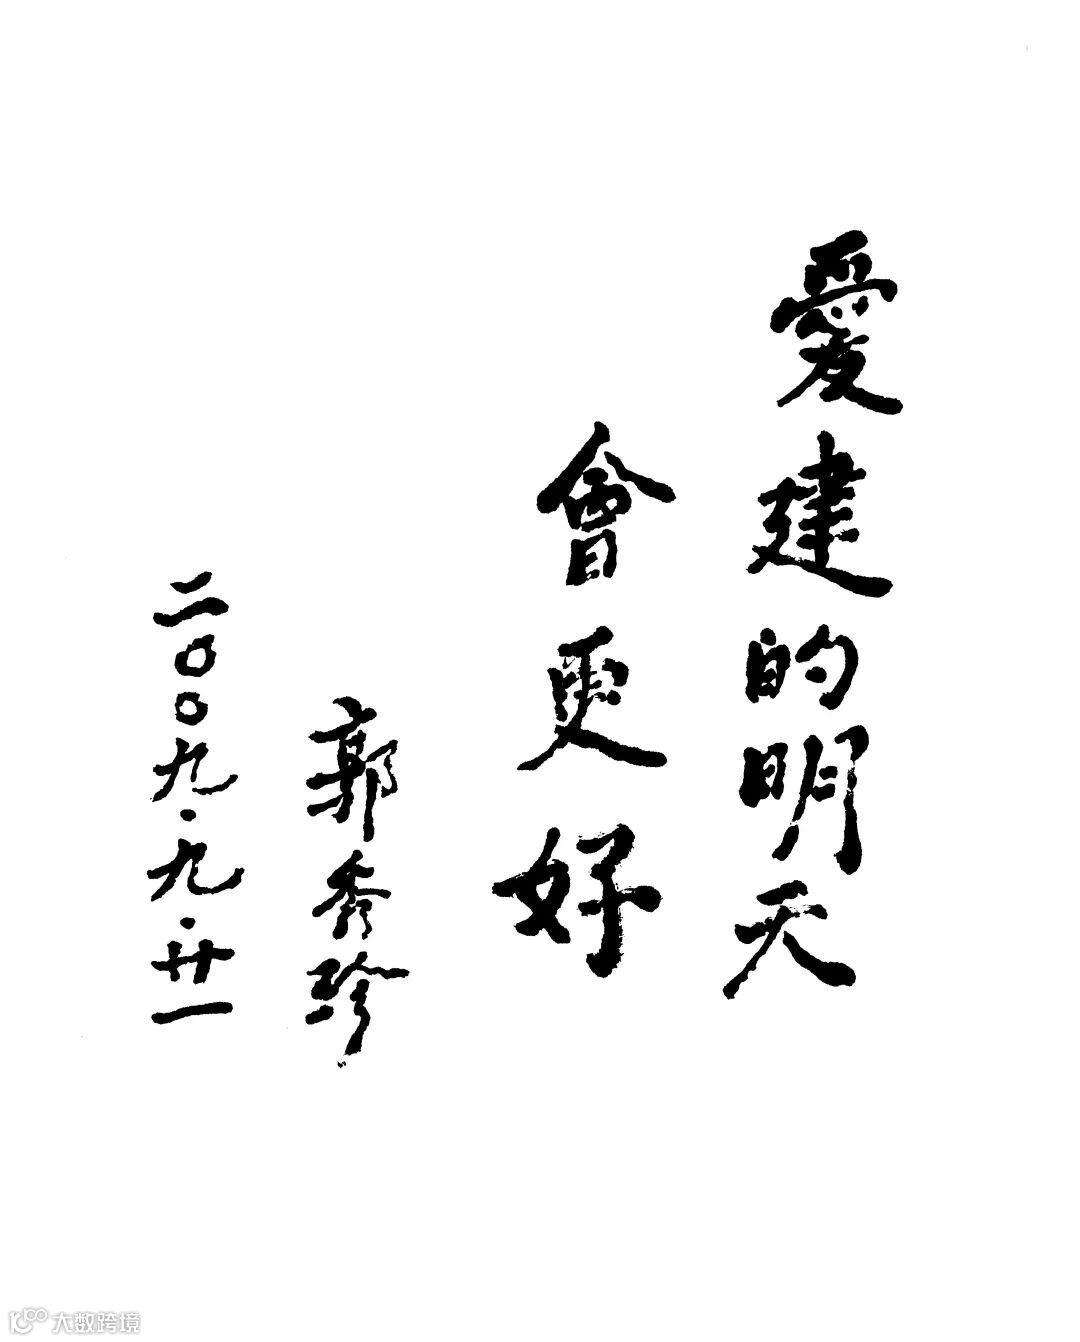 愛建的明天
會更好
郭秀珍
二〇〇九·九·廿一
大数跨境